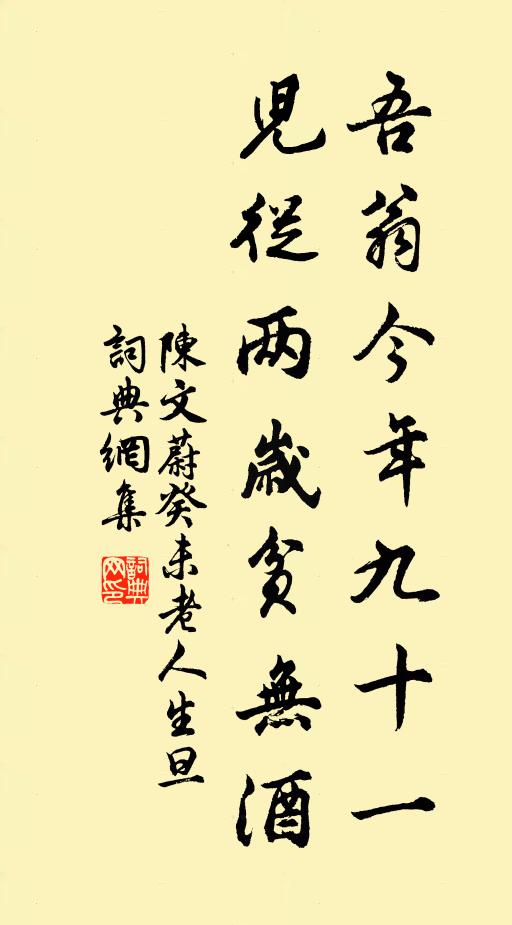 吾翁今年九十一
児從兩歲貧無酒
陳文蔚癸未老人生旦
詞典網集
詞典网印